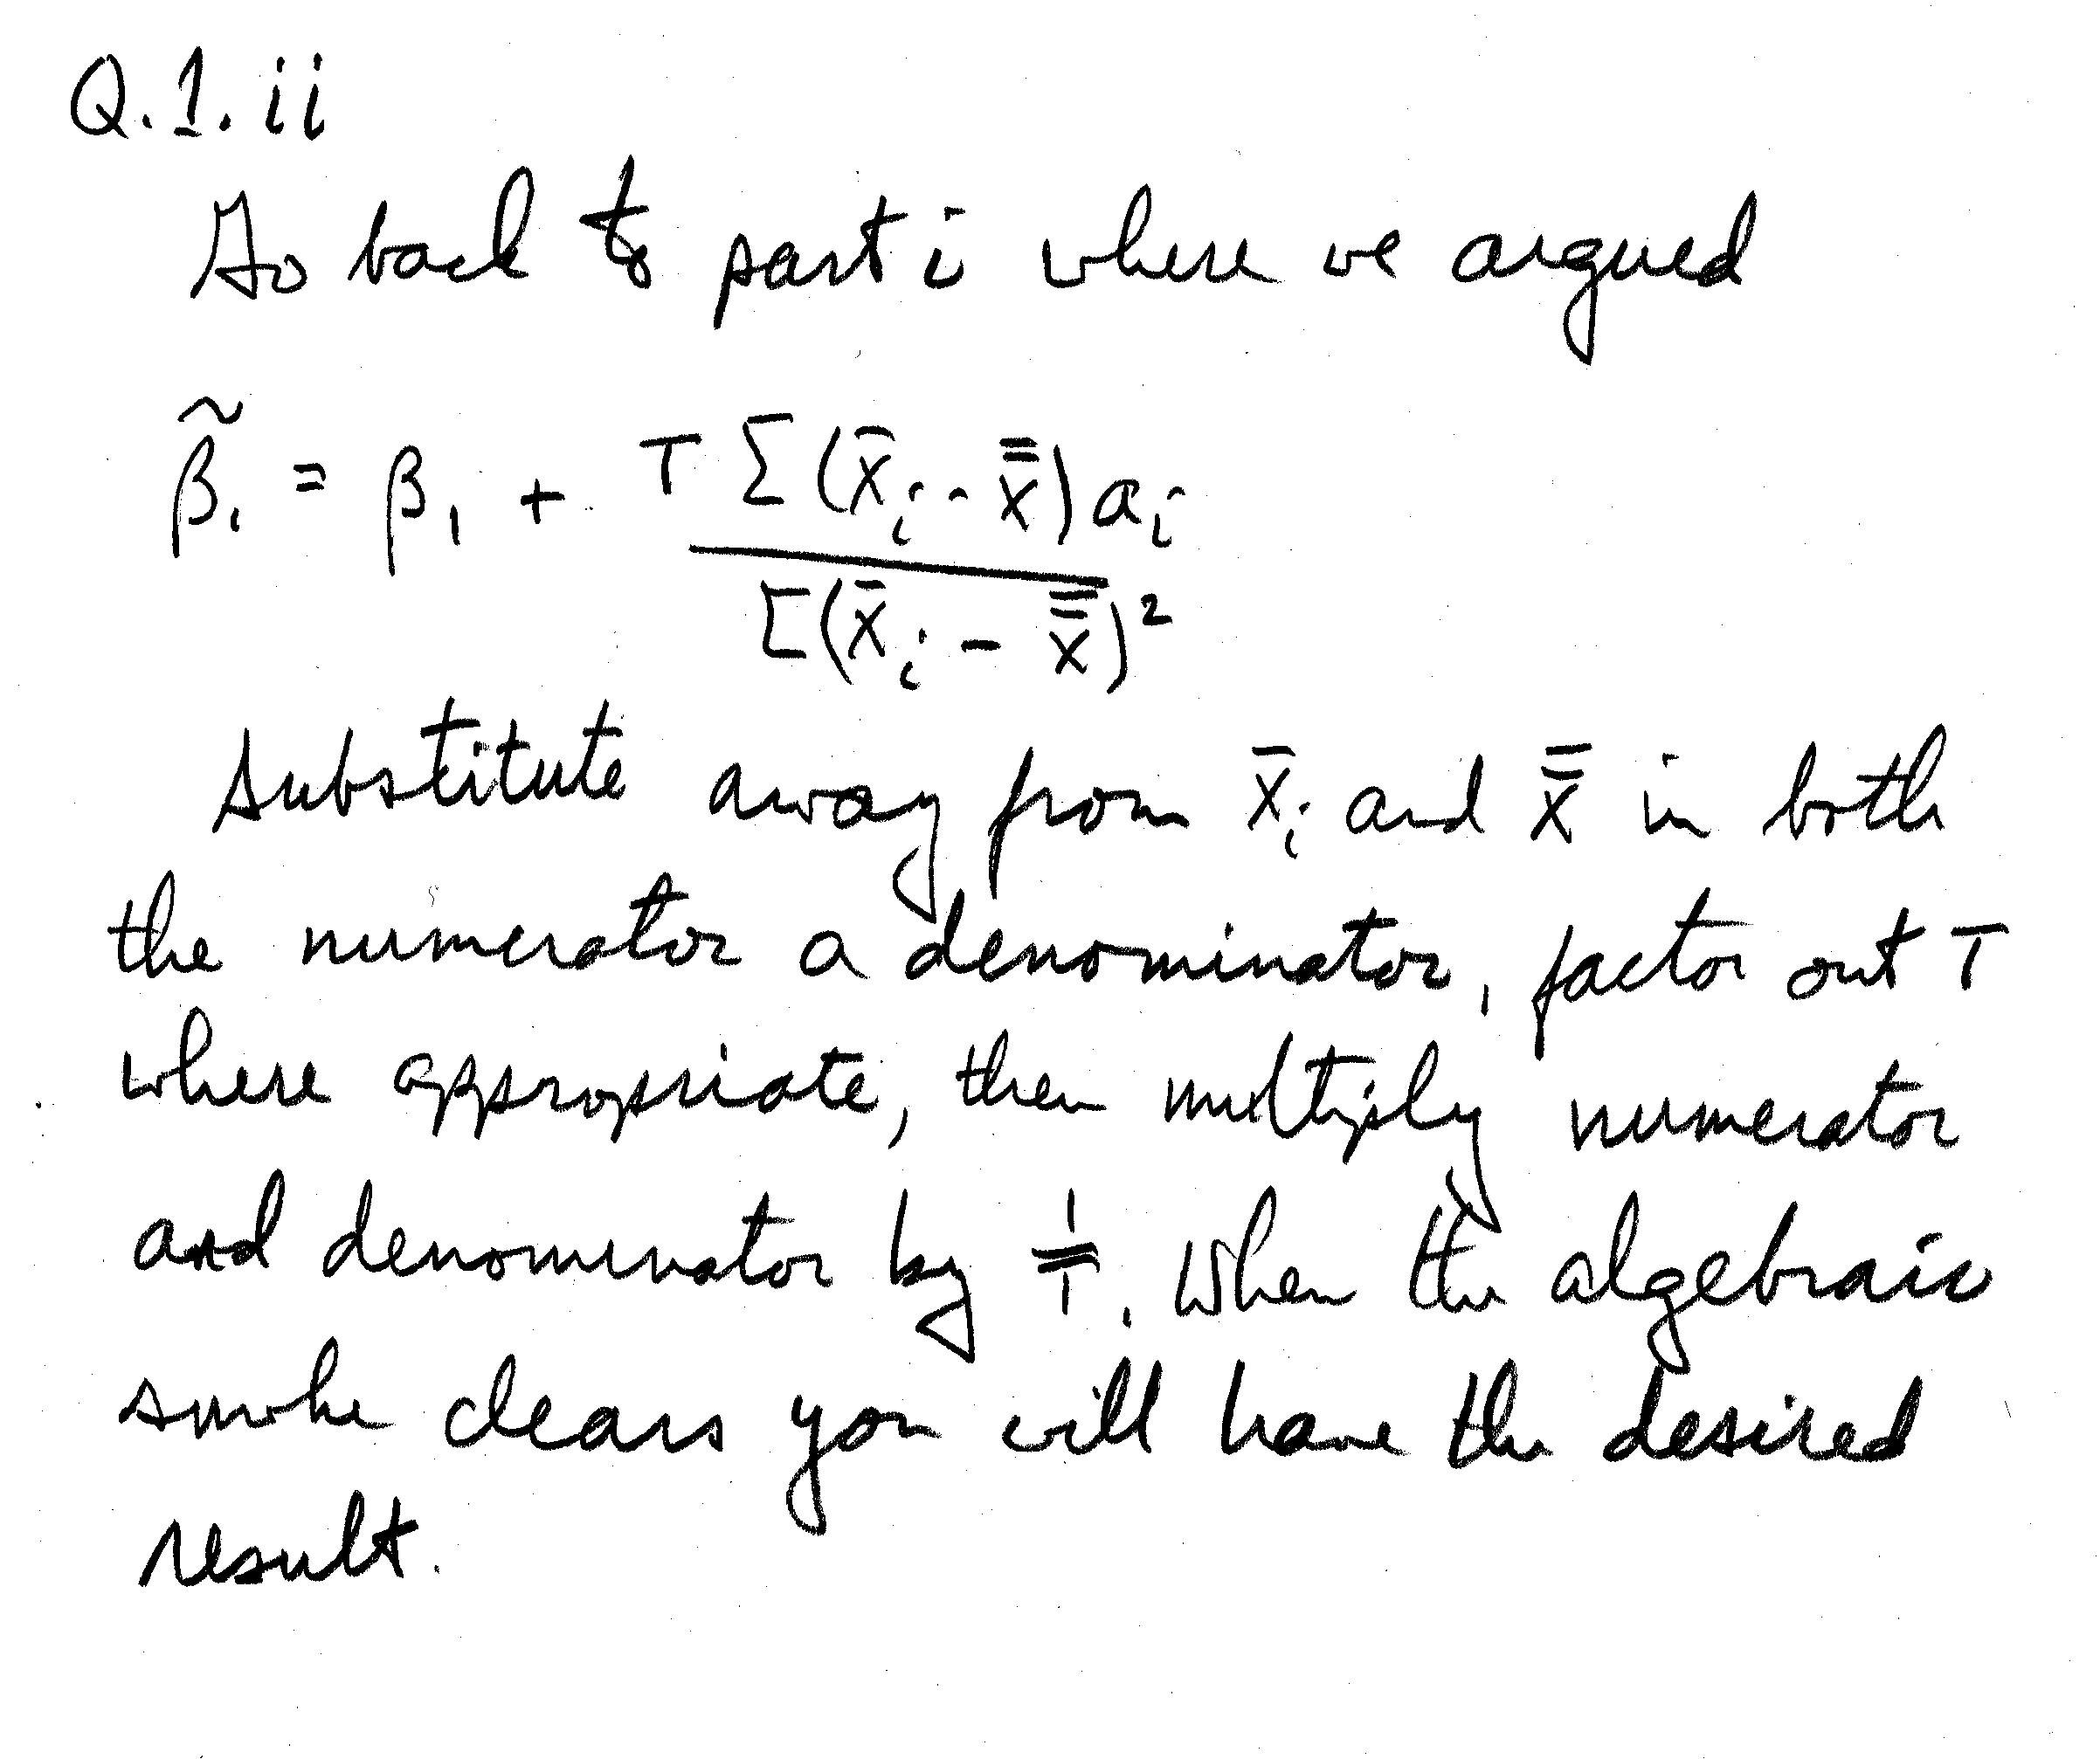 Q.1.ii
Go back to part i where we argued
β̃₁ = β₁ + T Σ(x̄ᵢ - x̿)aᵢ
Σ(x̄ᵢ - x̿)²
Substitute away from x̄ᵢ and x̿ in both
the numerator a denominator, factor out T
where appropriate, then multiply numerator
and denominator by 1/T. When the algebraic
smoke clears you will have the desired
result.